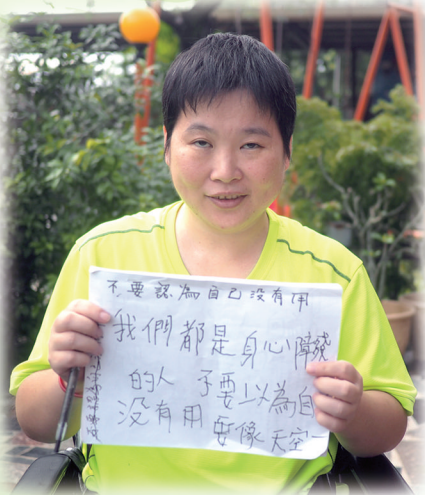 不要認為自己沒有用
我們都是身心障
的人 子要以為自
沒有用 要像天空一